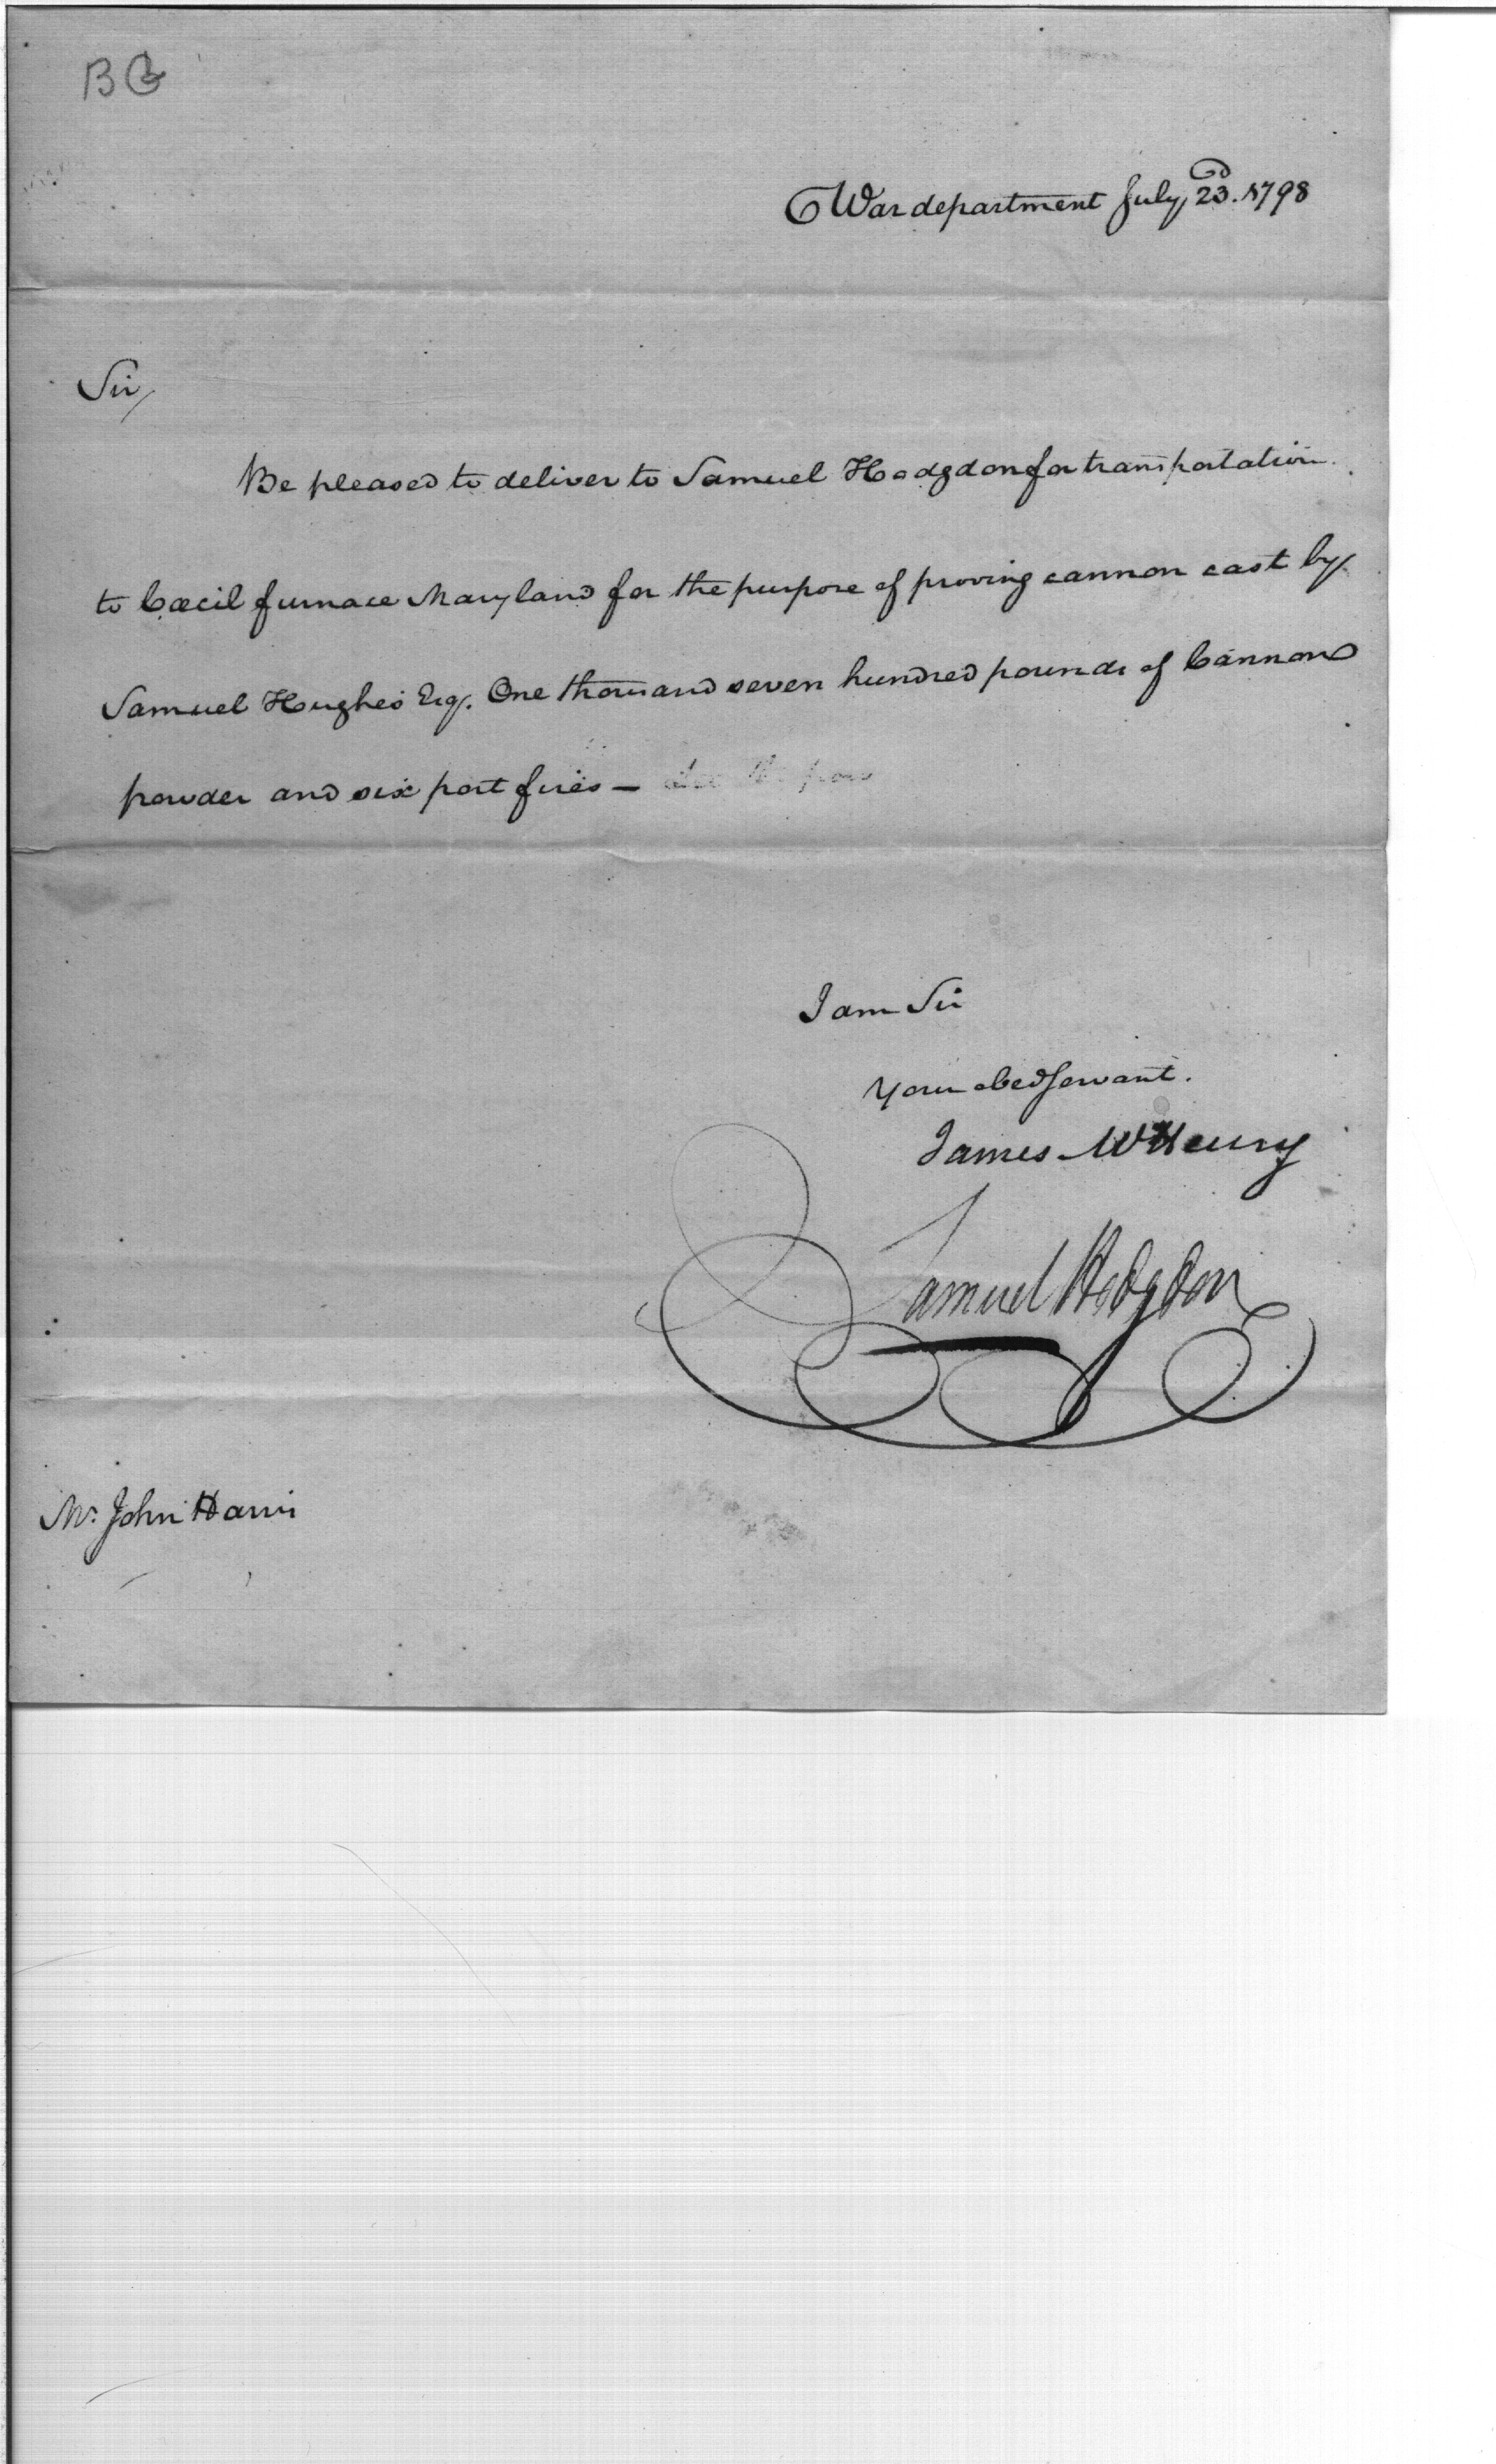 BG
War department July 23d. 1798
Sir,
Be pleased to deliver to Samuel Hodgdon for transportation
to Cæcil furnace Maryland for the purpose of proving cannon cast by
Samuel Hughes Esq. One thousand seven hundred pounds of Cannon
powder and six port fires —
I am Sir
your obed servant.
James McHenry
Samuel Hodgdon
Mr. John Harris